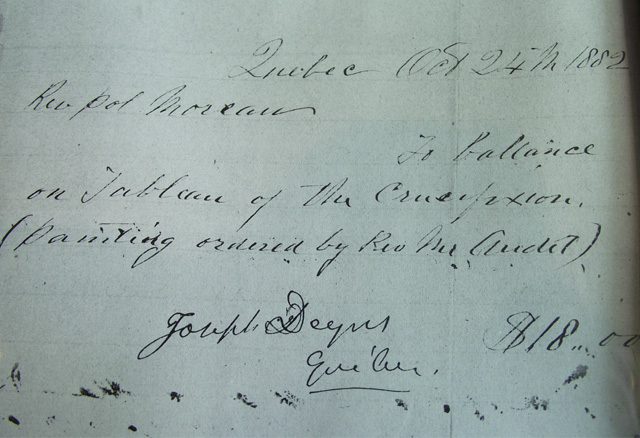 Quebec Oct 24th 1882
Rev Pol Moreau
To ballance
on Tableau of the Crucifixion.
(Painting ordered by Rev Mr Audet)
Joseph Dynes
$18.00
Québec.